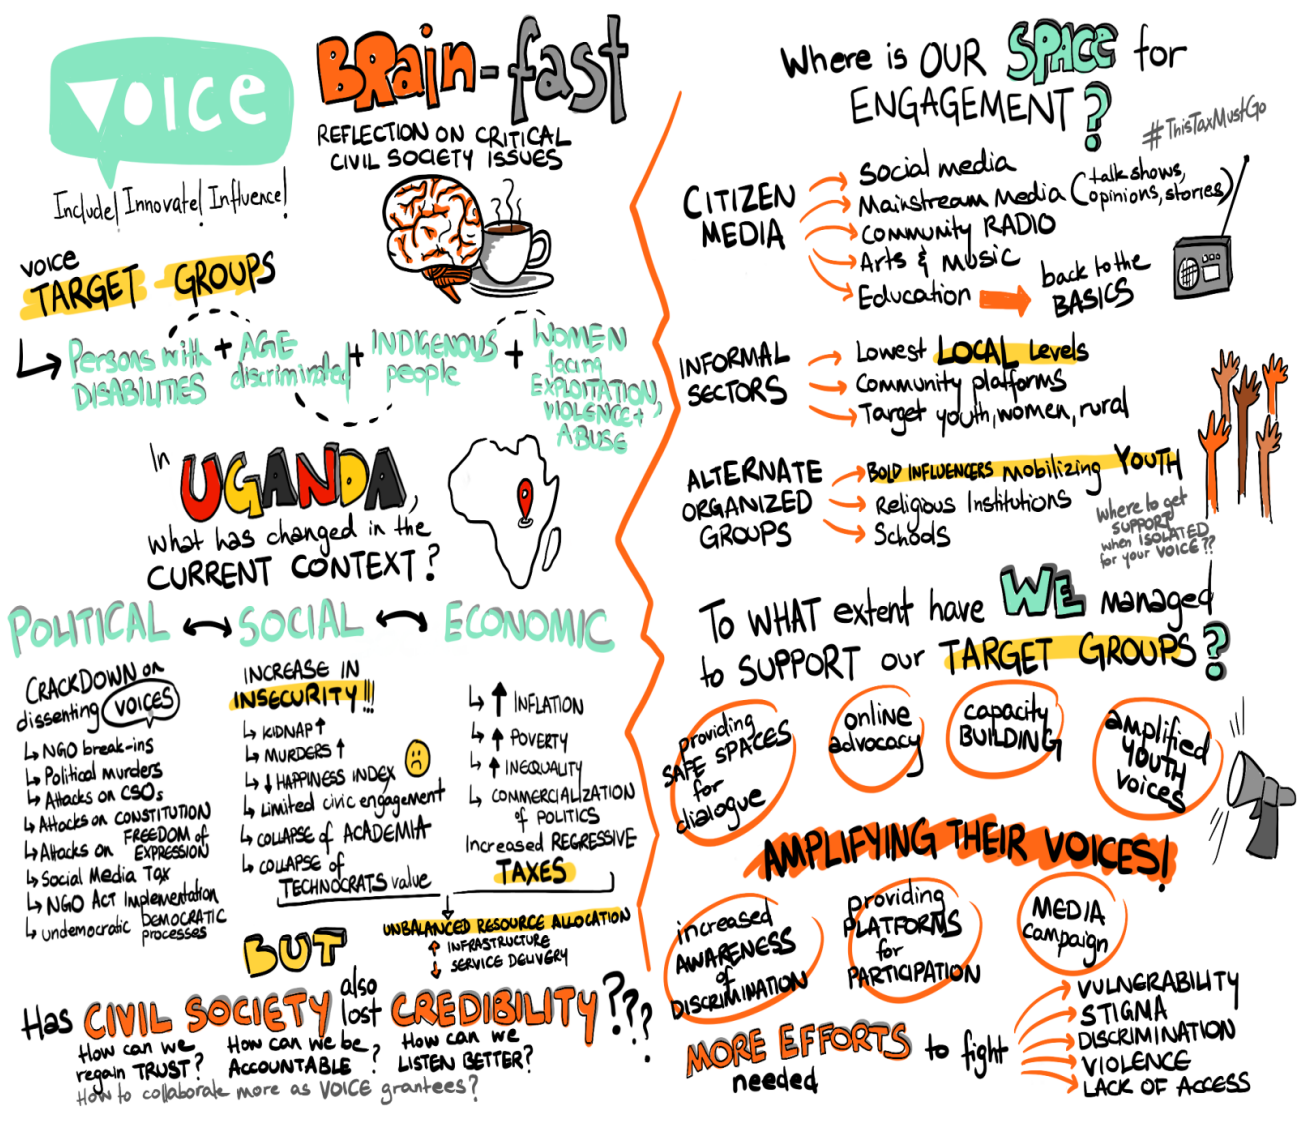 VOICE
Include! Innovate! Influence!
BRain-fast
REFLECTION ON CRITICAL
CIVIL SOCIETY ISSUES
VOICE
TARGET GROUPS
Persons with
DISABILITIES
+
AGE
discriminated
+
INDIGENOUS
people
+
WOMEN
facing
EXPLOITATION,
VIOLENCE +
ABUSE
In
UGANDA,
what has changed in the
CURRENT CONTEXT?
POLITICAL
CRACKDOWN on
dissenting VOICES
NGO break-ins
Political murders
Attacks on CSOs
Attacks on CONSTITUTION
Attacks on FREEDOM of
EXPRESSION
Social Media Tax
NGO ACT Implementation
undemocratic DEMOCRATIC
processes
SOCIAL
INCREASE IN
INSECURITY!!!
KIDNAP ↑
MURDERS ↑
↓ HAPPINESS INDEX
Limited civic engagement
COLLAPSE of ACADEMIA
COLLAPSE of
TECHNOCRATS value
ECONOMIC
↑ INFLATION
↑ POVERTY
↑ INEQUALITY
COMMERCIALIZATION
of POLITICS
Increased REGRESSIVE
TAXES
UNBALANCED RESOURCE ALLOCATION
↑ INFRASTRUCTURE
↓ SERVICE DELIVERY
BUT
Has CIVIL SOCIETY also lost CREDIBILITY????
How can we
regain TRUST?
How can we be
ACCOUNTABLE?
How can we
LISTEN BETTER?
How to collaborate more as VOICE grantees?
Where is OUR SPACE for
ENGAGEMENT?
#ThisTaxMustGo
CITIZEN
MEDIA
Social media
Mainstream Media (talk shows,
opinions, stories)
Community RADIO
Arts & Music
Education
back to the
BASICS
INFORMAL
SECTORS
Lowest LOCAL Levels
Community platforms
Target youth, women, rural
ALTERNATE
ORGANIZED
GROUPS
BOLD INFLUENCERS mobilizing YOUTH
Religious Institutions
Schools
Where to get
SUPPORT
when ISOLATED
for your VOICE??
To WHAT extent have WE managed
to SUPPORT our TARGET GROUPS?
providing
SAFE SPACES
for
dialogue
online
advocacy
capacity
BUILDING
amplified
YOUTH
voices
AMPLIFYING THEIR VOICES!
increased
AWARENESS
of
DISCRIMINATION
providing
PLATFORMS
for
PARTICIPATION
MEDIA
campaign
MORE EFFORTS
needed
to fight
VULNERABILITY
STIGMA
DISCRIMINATION
VIOLENCE
LACK OF ACCESS